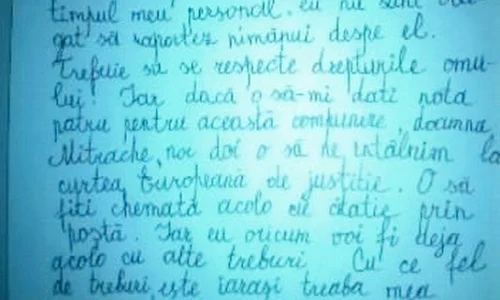 timpul meu personal, eu nu sunt obli-
gat să raportez nimănui despe el.
Trebuie să se respecte drepturile omu-
lui! Iar dacă o să-mi dați nota
patru pentru această compunere, doamna
Mitrache, noi doi o să ne întâlnim la
curtea Europeană de justiție. O să
fiți chemată acolo cu citație prin
poștă. Iar eu oricum voi fi deja
acolo cu alte treburi. Cu ce fel
de treburi, este iarași treaba mea